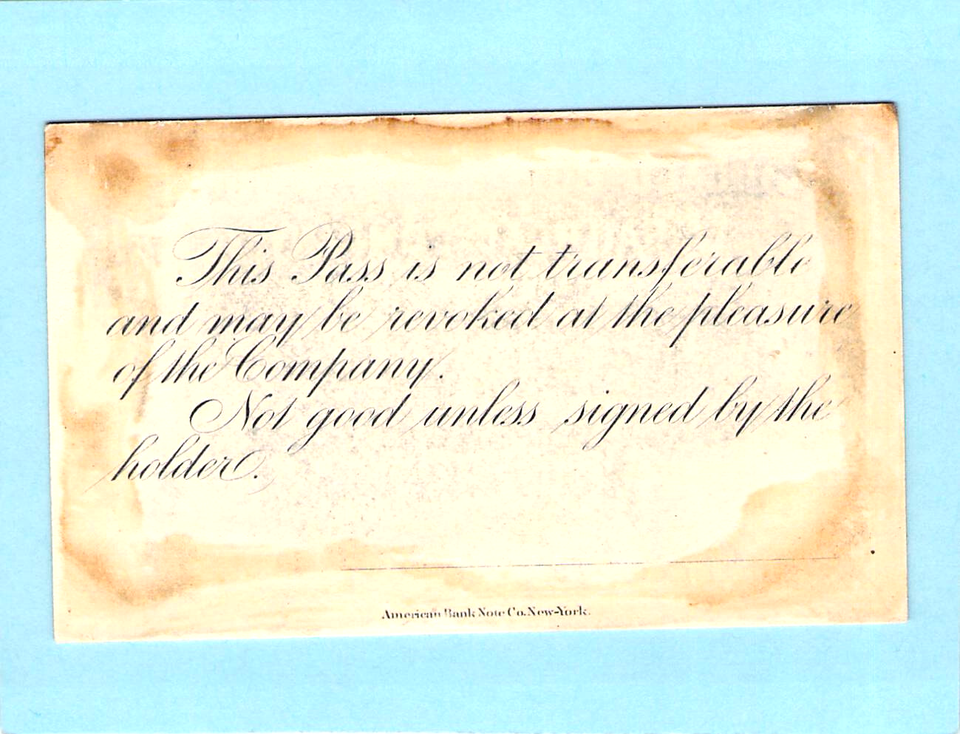 This Pass is not transferable
and may be revoked at the pleasure
of the Company.
Not good unless signed by the
holder.
American Bank Note Co. New-York.